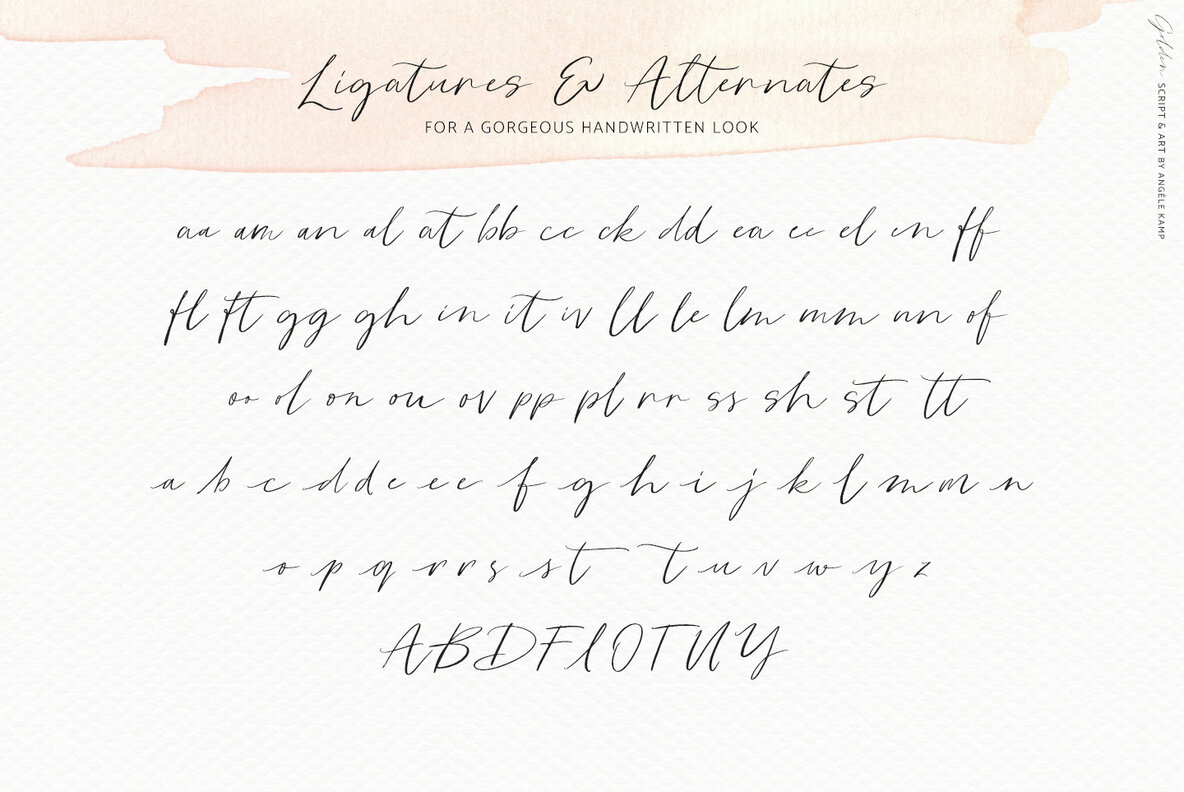 Ligatures & Alternates
FOR A GORGEOUS HANDWRITTEN LOOK
aa am an al at bb cc ck dd ea ee el en ff
fl ft gg gh in it iv ll le lm mm nn of
oo ol on ou ov pp pl rr ss sh st tt
a b c d d e e e f g h i j k l m m n
o p q r r s s t t u v w y z
A B D F I O T U Y
Golden SCRIPT & ART BY ANGÈLE KAMP